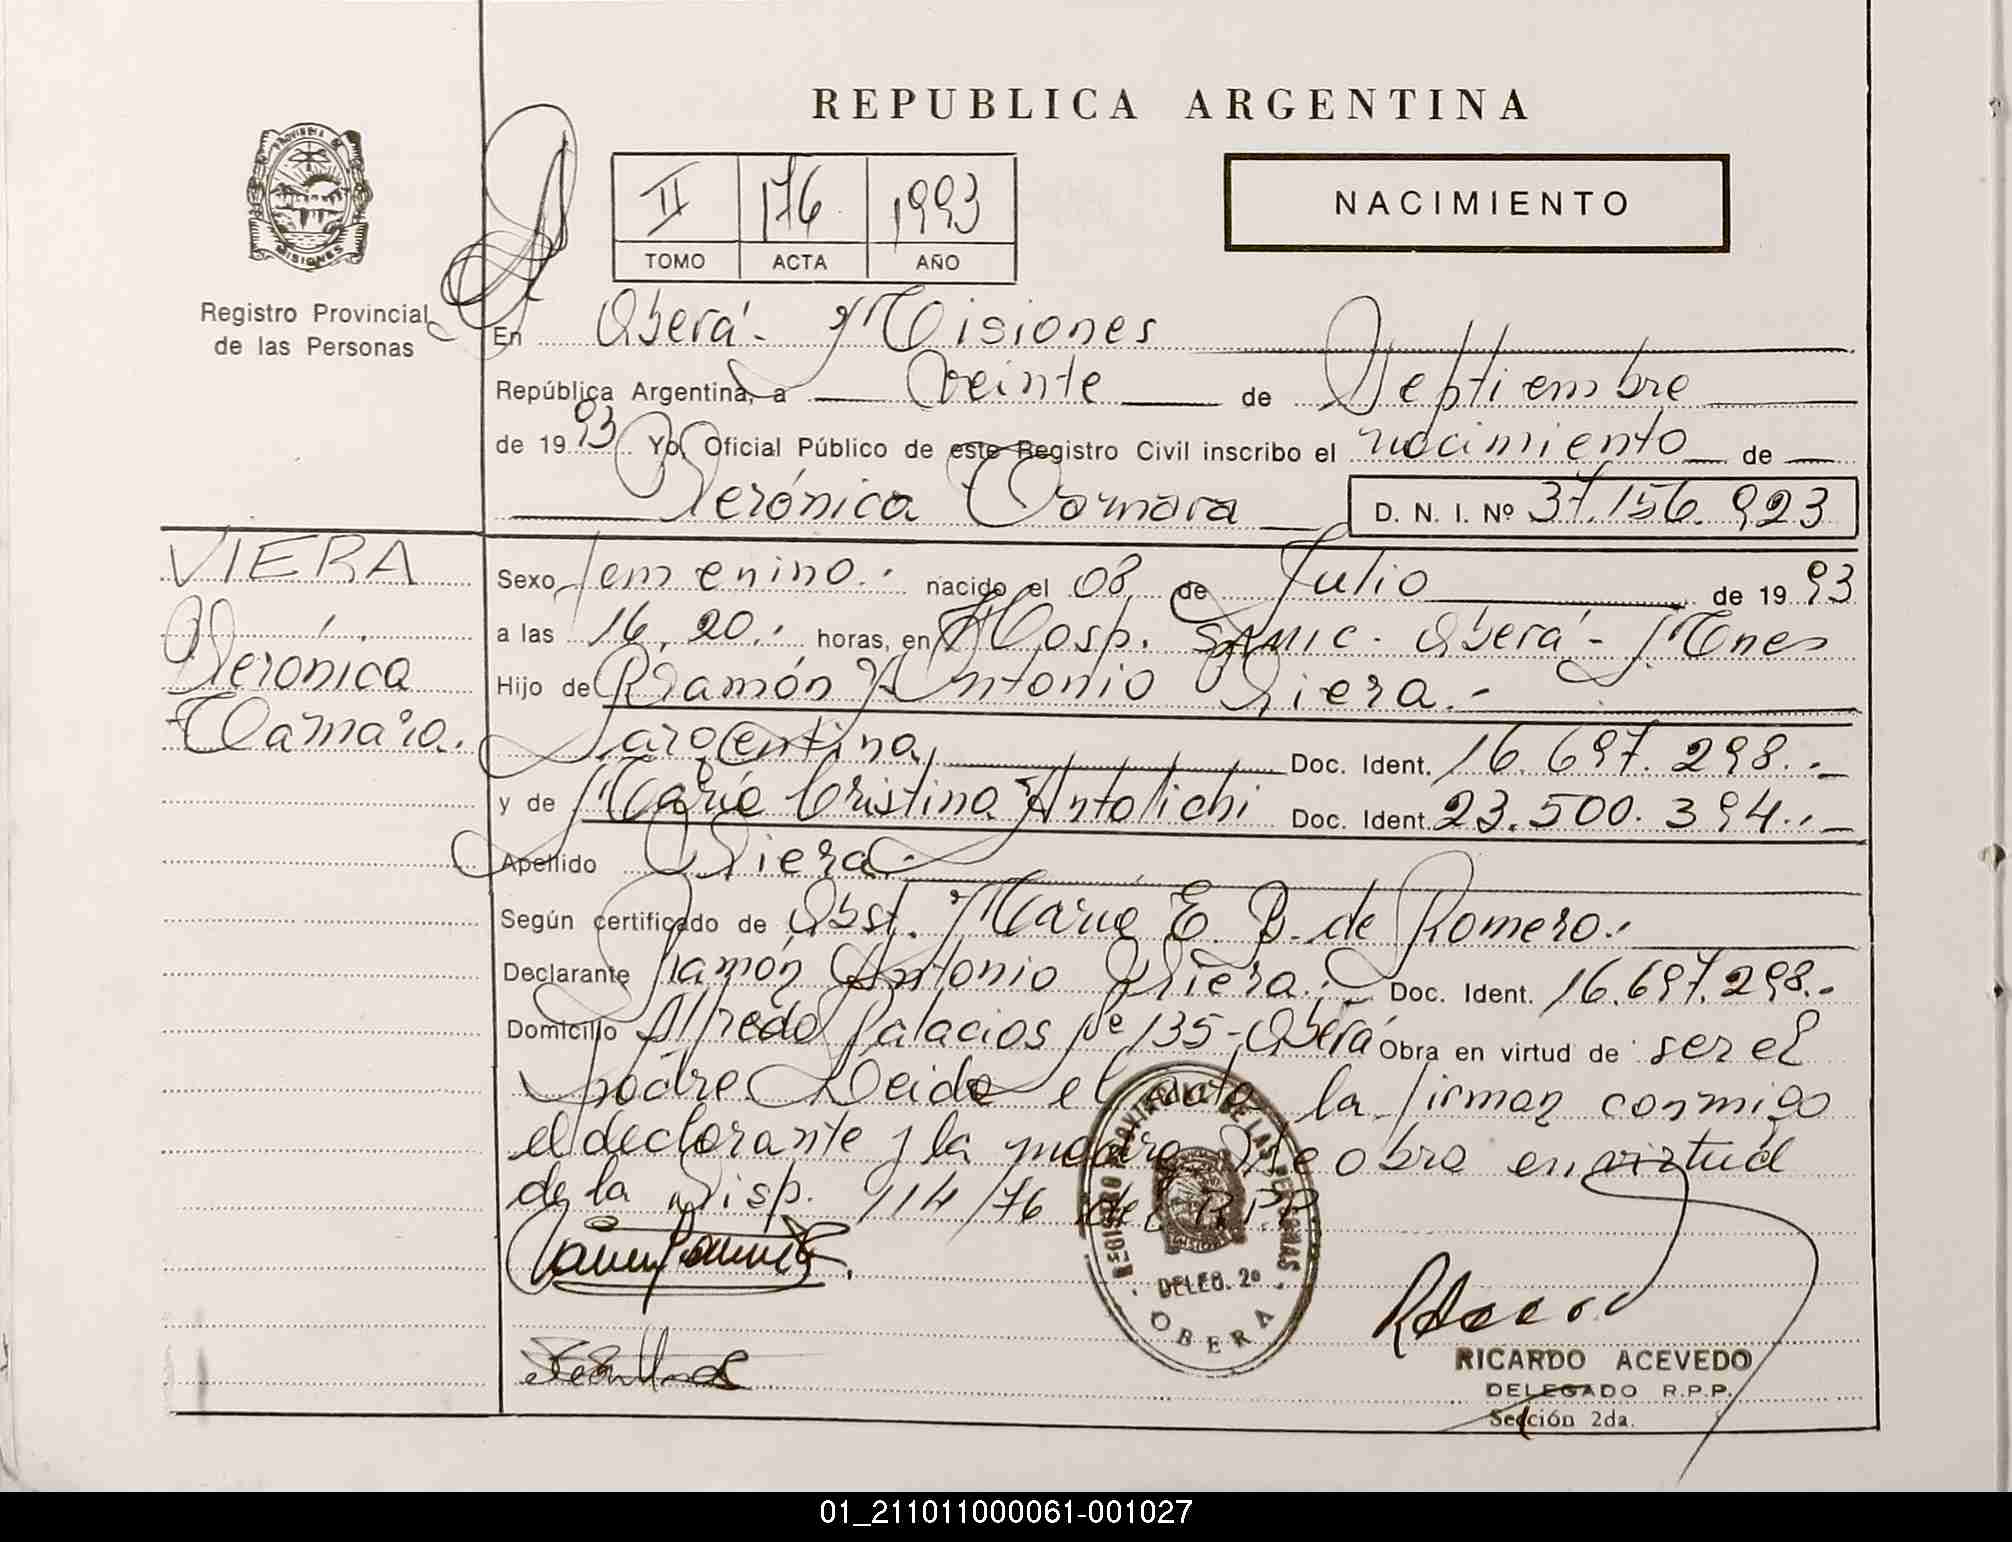 REPUBLICA ARGENTINA
PROVINCIA DE MISIONES
Registro Provincial
de las Personas
II 176 1993
TOMO ACTA AÑO
NACIMIENTO
En Oberá - Misiones
República Argentina, a veinte de Septiembre
de 1993 Yo, Oficial Público de este Registro Civil inscribo el nacimiento de
Verónica Tamara D. N. I. Nº 37.156.923
VIERA
Verónica
Tamara.
Sexo femenino.- nacido el 08 de Julio de 1993
a las 16,20.- horas, en Hosp. SAMIC - Oberá - Mnes
Hijo de Ramón Antonio Viera.-
argentina Doc. Ident. 16.697.298.-
y de María Cristina Antolichi Doc. Ident. 23.500.394.-
Apellido Viera.
Según certificado de Obst. María E. B. de Romero.-
Declarante Ramón Antonio Viera.- Doc. Ident. 16.697.298.-
Domicilio Alfredo Palacios Nº 135 - Oberá Obra en virtud de ser el
padre Leida el acta la firman conmigo
el declarante y la madre Se obra en virtud
de la Disp. 114/76 del RPP
REGISTRO PROVINCIAL DE LAS PERSONAS
MISIONES
DELEG. 2º
OBERA
RICARDO ACEVEDO
DELEGADO R.P.P.
Sección 2da.
01_211011000061-001027